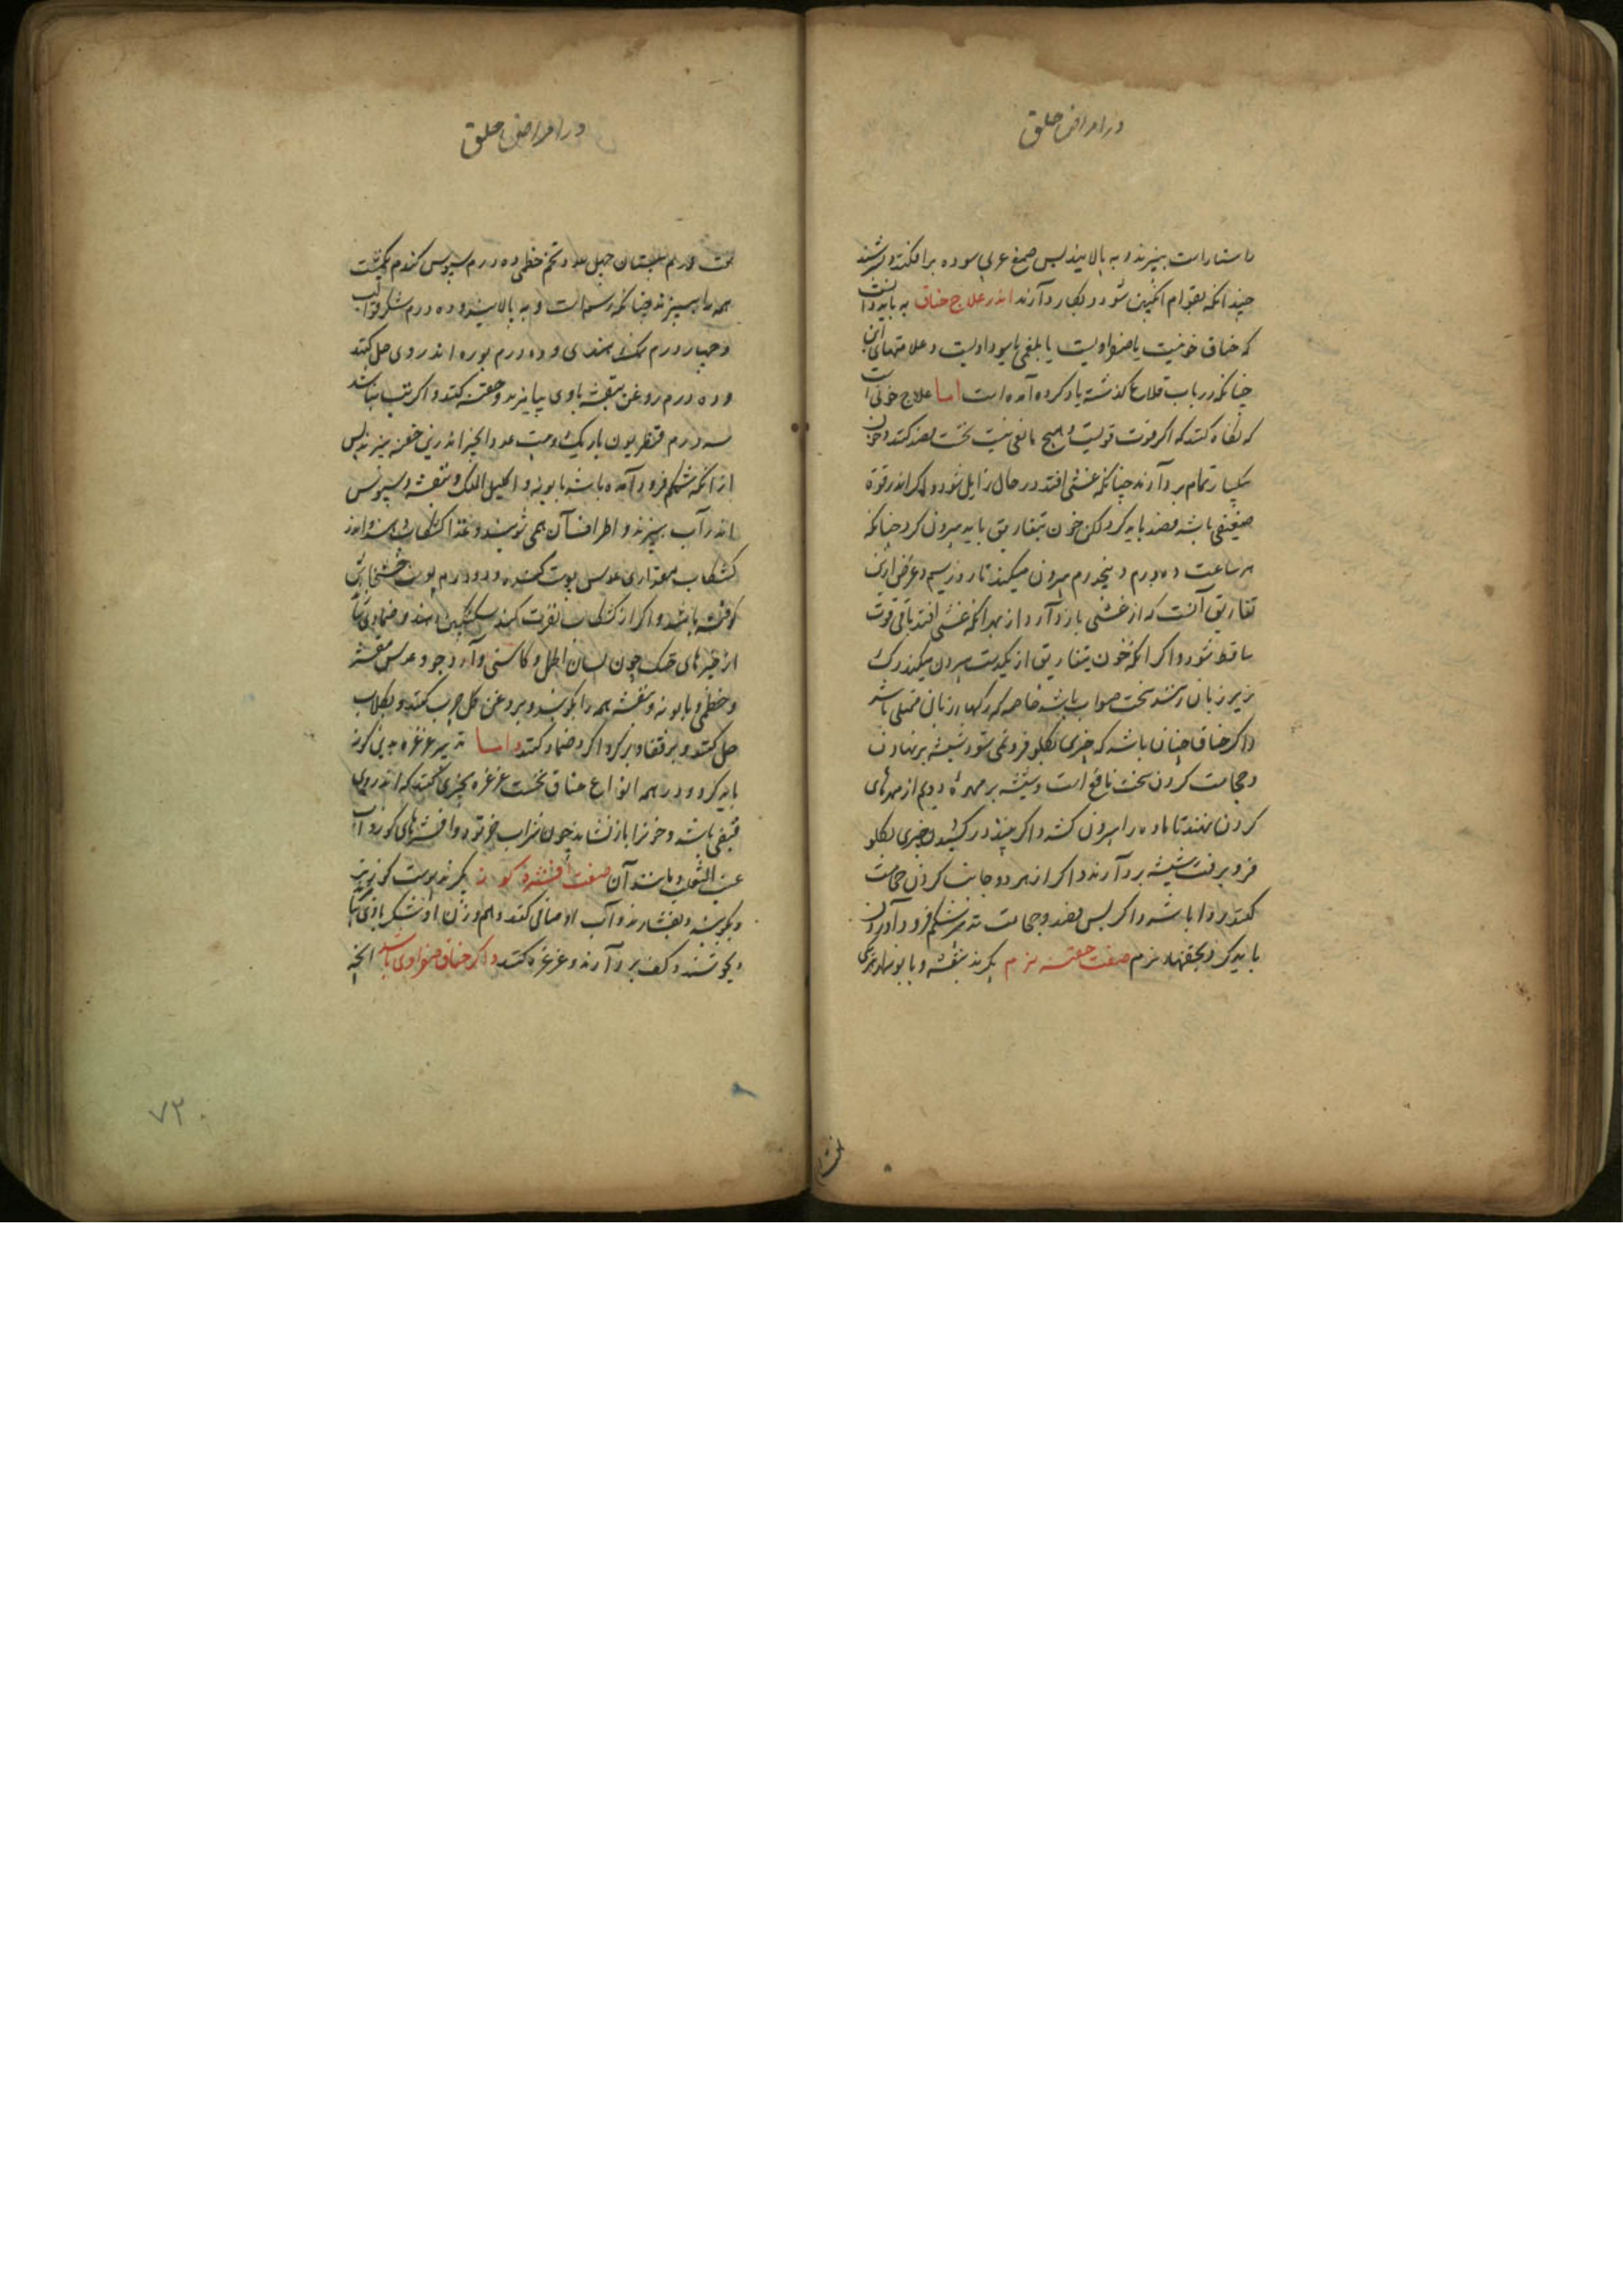 در امراض حلق
داستار است بپزند و به پالایند پس صمغ عربی سوده برافکنند و بسرشند
چندانکه بقوام انگبین شود و بکار دآرند اندر علاج خناق به باید دانست
که خناق خونیست یا صفراویست یا بلغمی یا سوداویست و علامتهای این
چنانکه در باب قلاع گذشته یاد کرده آمده است اما علاج خونی آنست
که نگاه کنند که اگر قوت قویست و هیچ مانعی نیست نخست فصد کنند و خون
یکبار تمام بردآرند چنانکه غشی افتد در حال زایل شود و اگر اندر قوة
ضعیفی باشد فصد باید کرد لکن خون بتفاریق باید بیرون کرد چنانکه
هر ساعت ده درم و پنجدرم بیرون میکنند تا روز سیم و غرض ازین
تفاریق آنست که از غشی باز دآرد از بهر آنکه غشی افتد باقی قوت
ساقط شود و اگر آنکه خون بتفاریق از یکدست بیرون میکنند رگ
زیر زبان زنند سخت صواب باشد خاصه که رگهاء زبانی ممتلی باشد
و اگر خناق چنان باشد که چیزی بگلو فرو نمی شود شیشه برنهادن
و حجامت کردن سخت نافع است و شیشه بر مهرۀ دویم از مهرهای
گردن نهند تا ماده را بیرون کشد و اگر چیزی در کشیدن چیزی بگلو
فرو برفت شیشه بردآرند و اگر از هر دو جانب گردن حجامت
کنند روا باشد و اگر پس فصد و حجامت تدبیر شکم فرود آوردن
باید کرد بحقنهاء نرم صفت حقنه نرم بگیرند بنفشه و بابونه از هر یکی
هشت
در امراض حلق
هشت درم سپستان چهل عدد و تخم خطمی ده درم سبوس گندم یکمشت
همه را بپزند چنانکه رسم است و به پالایند و ده درم شکر تواب
و چهار درم نمک هندی و ده درم بوره اندر وی حل کنند
و ده درم روغن بنفشه باوی بیامیزند و حقنه کنند و اگر تب نباشد
سه درم قنطریون باریک و بیست عدد انجیر اندرین حقنه بپزند پس
ازانکه شکم فرود آمده باشد بابونه و اکلیل الملک و بنفشه و سبوس
اندر آب بپزند و اطراف آن همی شویند و غذا کشکاب دهند و اندر
کشکاب مقداری عدس پوست کنده و دو درم پوست خشخاش
کوفته باشد و اگر از کشکاب نفرت کند سکنگبین دهند و ضمادی سازند
از چیزهای خنک چون لسان الحمل و کاسنی و آرد جو و عدس مقشر
و خطمی و بابونه و بنفشه همه را بکوبند و بروغن گل چرب کنند و بگلاب
حل کنند و بر قفا و بر گرداگرد ضماد کنند و اما تدبیر غرغره بدین گونه
باید کرد و در همه انواع خناق نخست غرغره بچیزی کنند که اندر وی
قبضی باشد و خونرا باز نشاند چون شراب خرتوت و افشرهای گوز و آب
عنب الثعلب و مانند آن صفت افشرۀ گوز بگیرند پوست گوز تر
و بکوبند و بفشارند و آب او صافی کنند و هم وزن او شکر باوی بیامیزند
و بجوشند و کف بردآرند و غرغره کنند و اگر خناق صفراوی باشد آنچه
۷۳۰